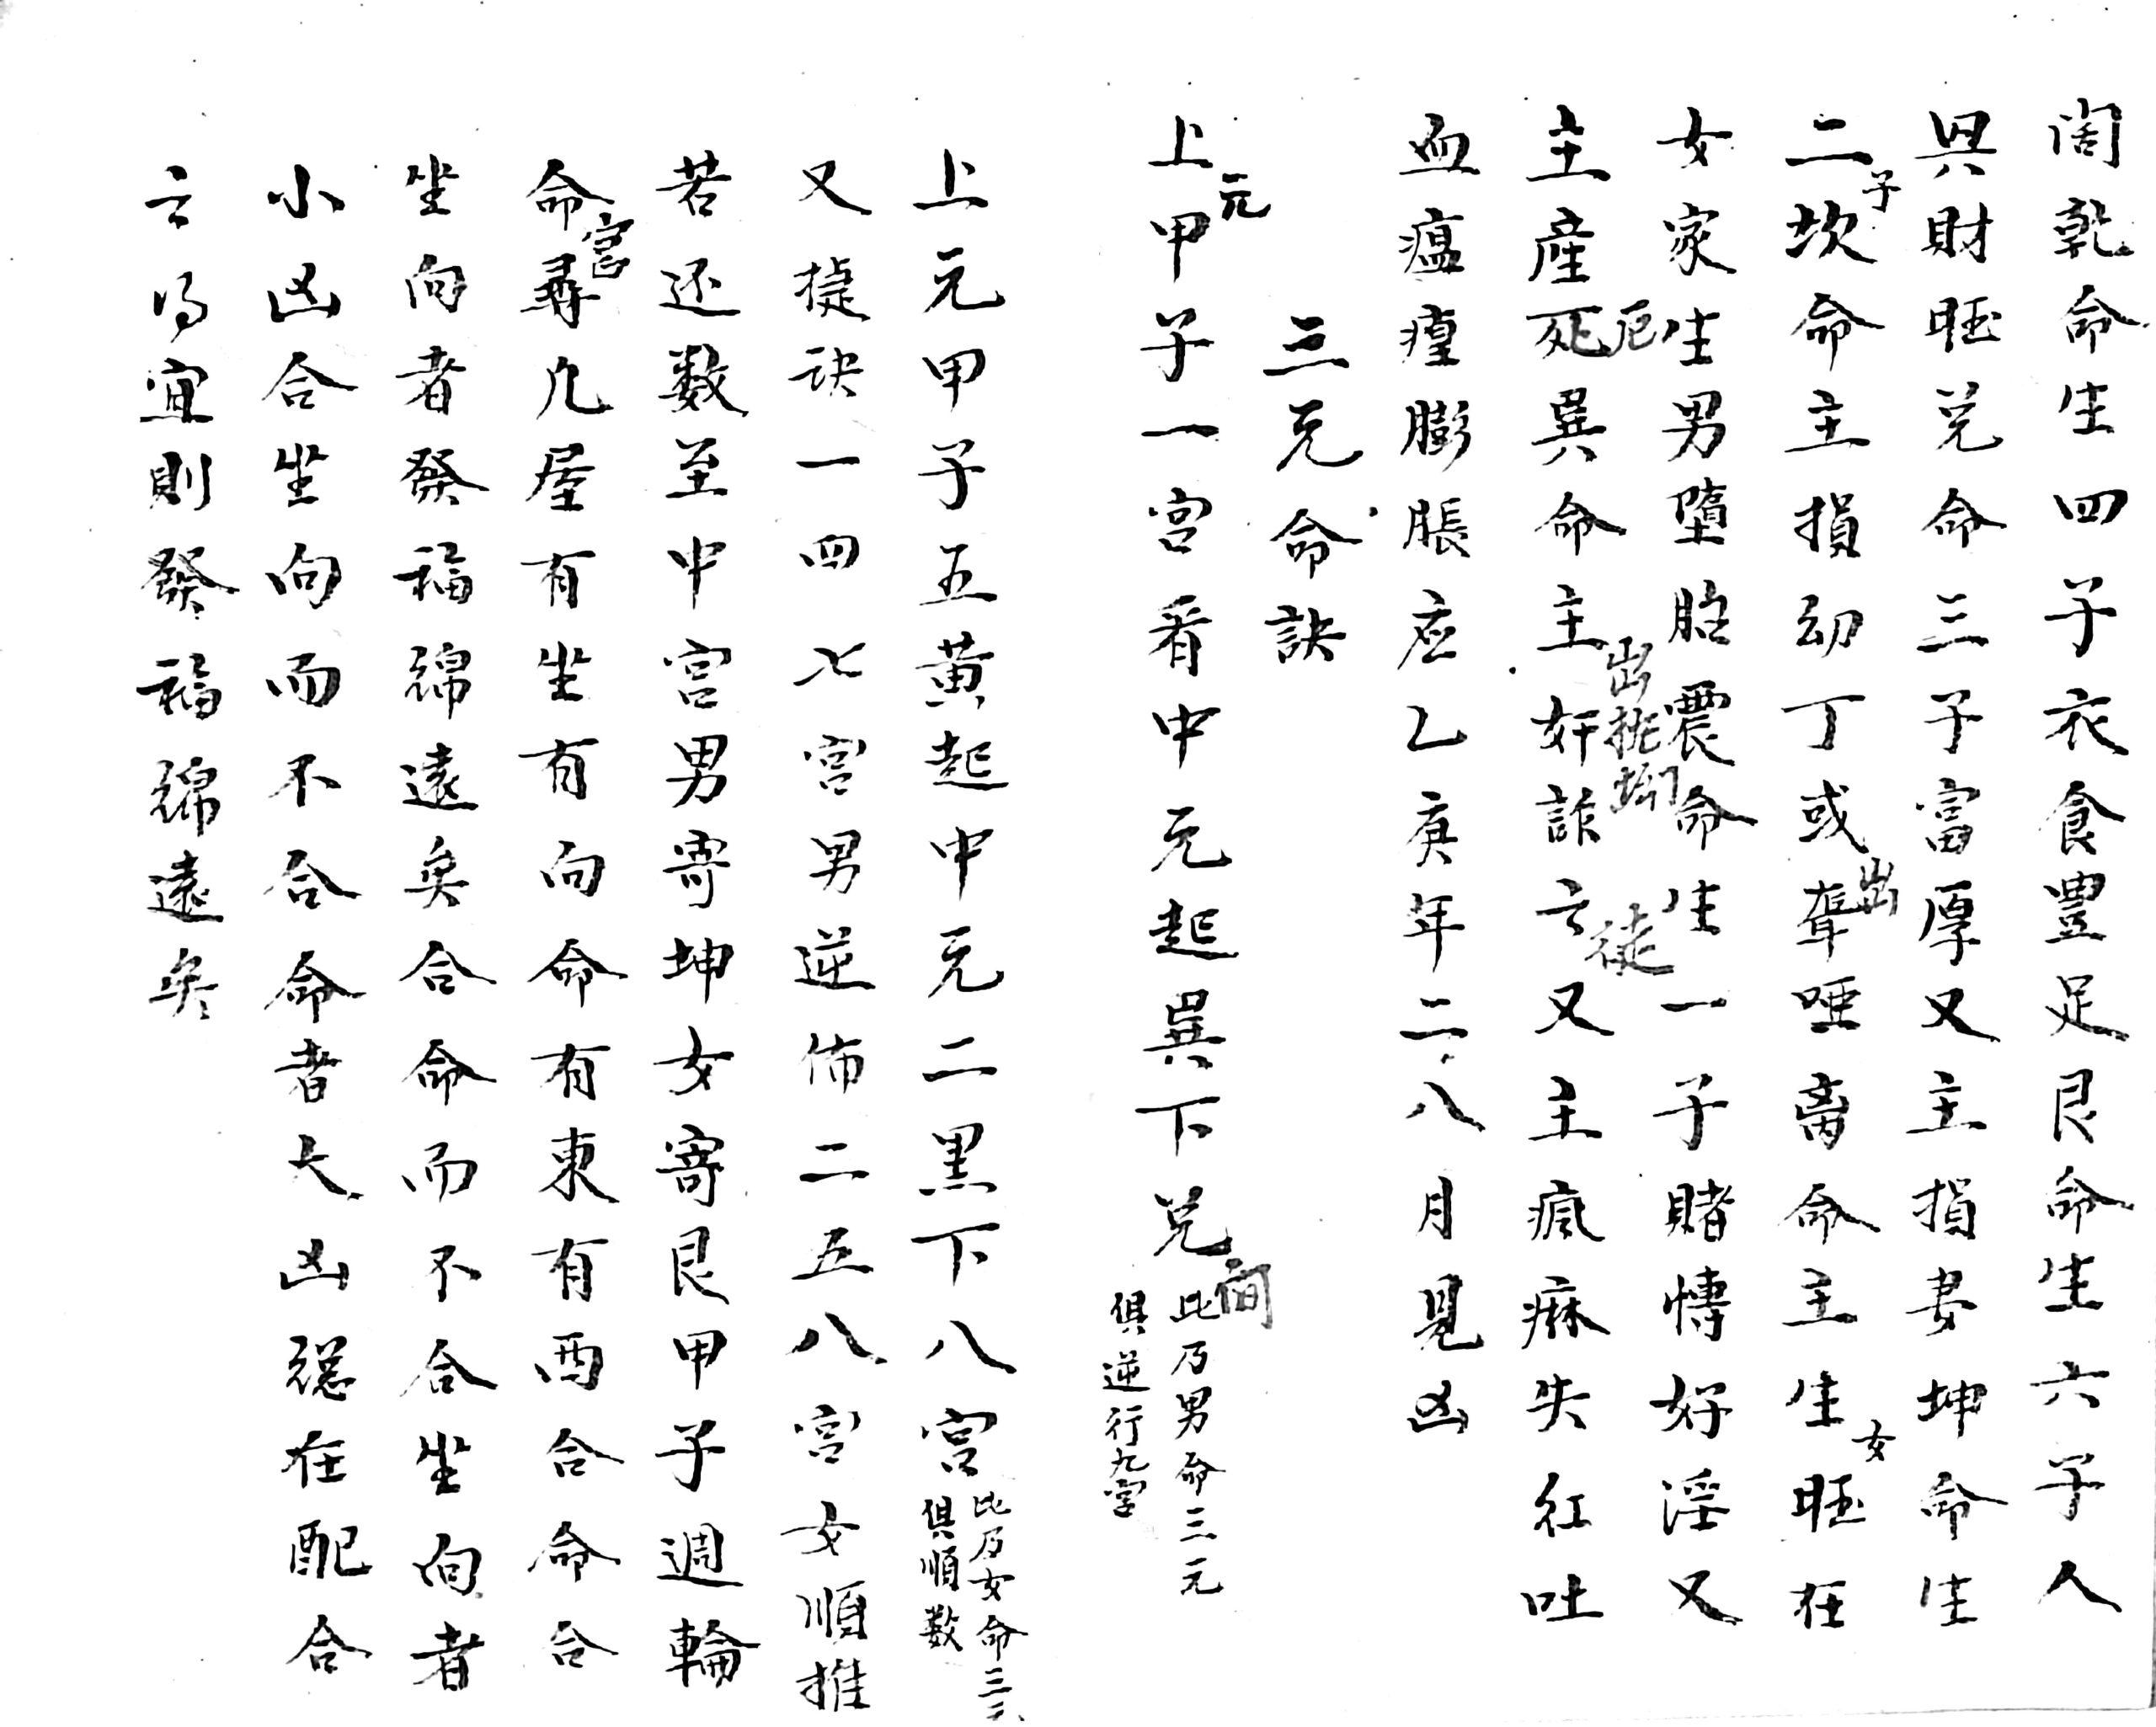 闺乾命生四子衣食豊足艮命生六子人
巽財旺兑命三子富厚又主損妻坤命生
二子坎命主損幼丁或出聋唖离命主生女旺在
女家生男墮胎震命生一子賭愽好淫又
主産死厄巽命主出批拗奸詐之徒又主瘋痳失红吐
血瘟㾮膨脹应乙庚年二八月見凶
三元命訣
上元甲子一宫看中元起巽下兑间此乃男命三元
俱逆行九宫
上元甲子五黄起中元二黒下八宫比乃女命三元
俱順数
又捷诀一四七宫男逆佈二五八宫女順推
若还数至中宫男寄坤女寄艮甲子週輪
命宫尋凢屋有坐有向命有東有西合命合
坐向者發福綿遠矣合命而不合坐向者
小凶合坐向而不合命者大凶総在配合
之得宜則發福綿遠矣